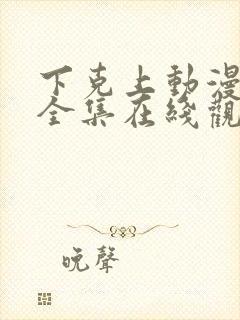 下克上動漫
全集在綫觀
晚聲